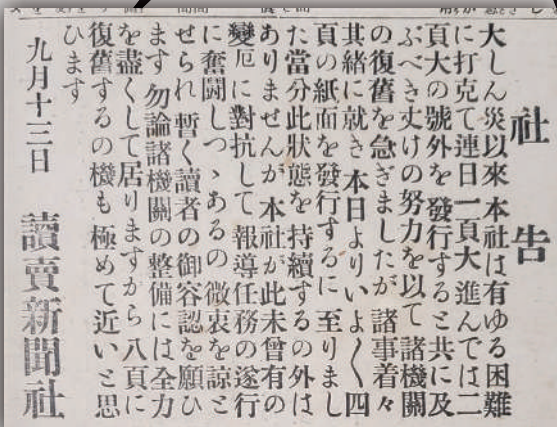 社告
大しん災以來本社は有ゆる困難
に打克て連日一頁大進んでは二
頁大の號外を發行すると共に及
ぶべき丈けの努力を以て諸機關
の復舊を急ぎましたが諸事着々
其緒に就き本日よりいよ〱四
頁の紙面を發行するに至りまし
た當分此狀態を持續するの外は
ありませんが本社が此未曾有の
變厄に對抗して報導任務の遂行
に奮鬪しつゝあるの微衷を諒と
せられ暫く讀者の御容認を願ひ
ます勿論諸機關の整備には全力
を盡くして居りますから八頁に
復舊するの機も極めて近いと思
ひます
九月十三日 讀賣新聞社